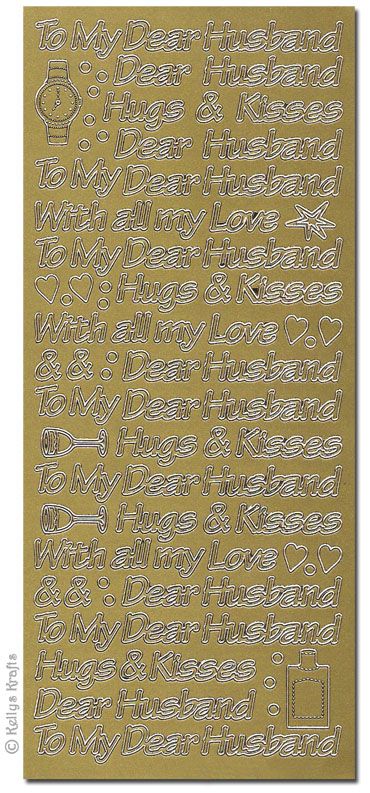 To My Dear Husband
Dear Husband
Hugs & Kisses
Dear Husband
To My Dear Husband
With all my Love
To My Dear Husband
Hugs & Kisses
With all my Love
& & Dear Husband
To My Dear Husband
Hugs & Kisses
To My Dear Husband
Hugs & Kisses
With all my Love
& & Dear Husband
To My Dear Husband
Hugs & Kisses
Dear Husband
To My Dear Husband
© Kellys Krafts